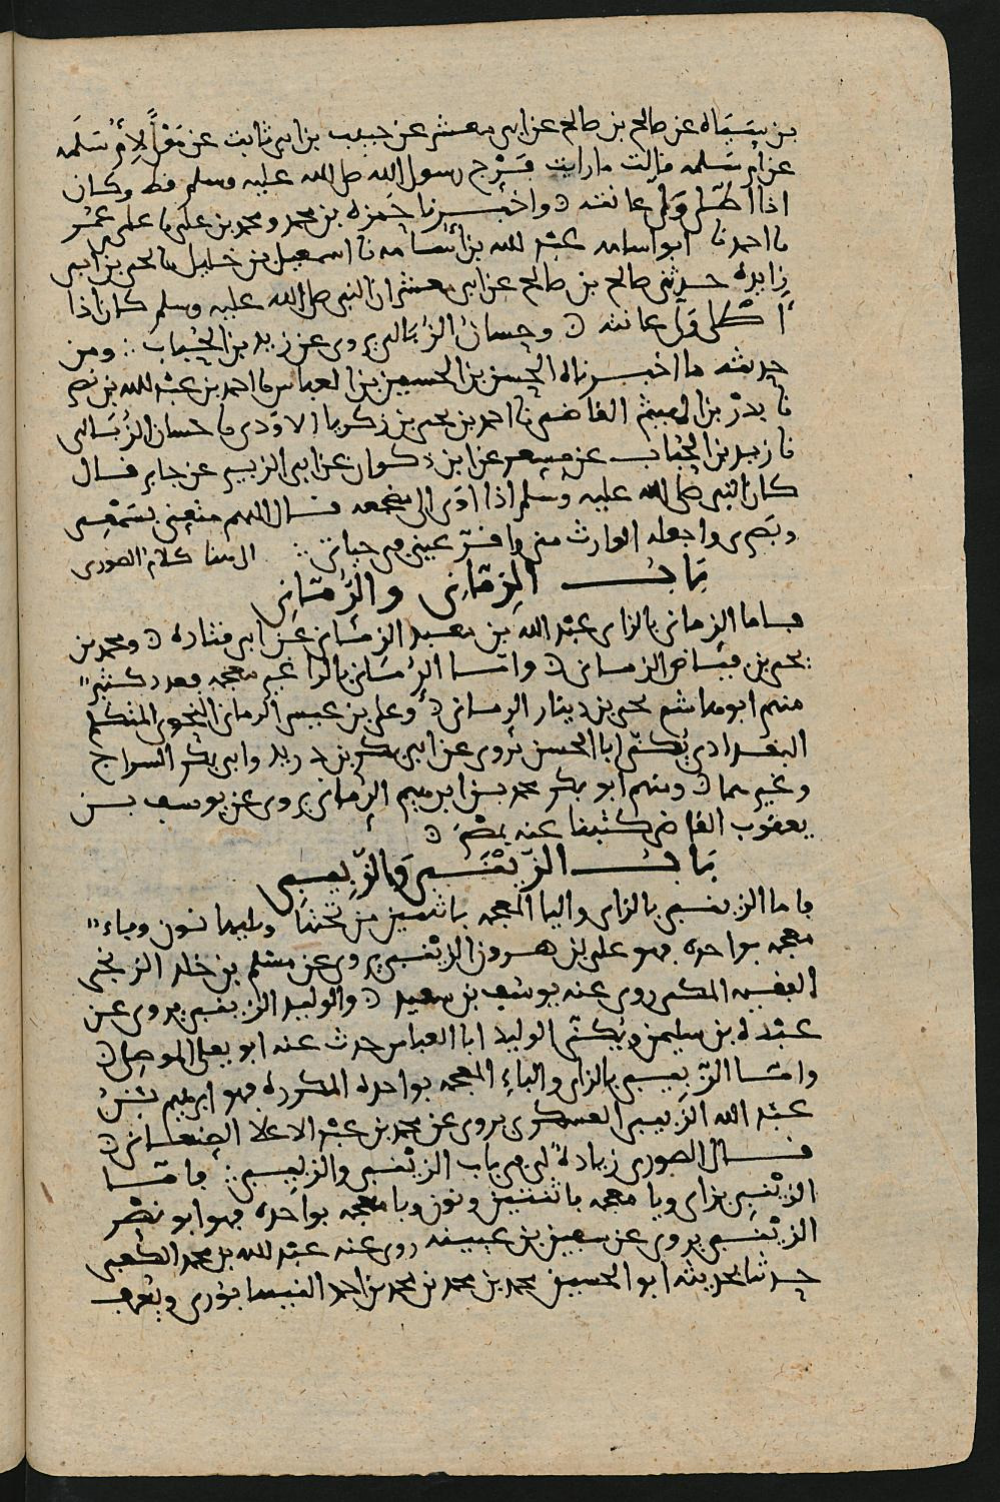 بن سيماه عن صالح بن صالح عن ابي معشر عن حبيب بن ابي ثابت عن لام سلمه
عن ام سلمه قالت ما رايت فرج رسول الله صلى الله عليه وسلم قط وكان
اذا اطلى ولى عانته واخبرنا حمزه بن محمد ومحمد بن علي علي عمر
نا احمد نا ابو اسامه عبد الله بن اسامه نا اسمعيل بن خليل نا يحيى بن ابي
زايده حدثني صالح بن صالح عن ابي معشر ان النبي صلى الله عليه وسلم كان اذا
اطلى ولي عانته وحسان الزمالي يروي عن زيد بن الحباب ومن
حديثه ما اخبرناه الحسن بن الحسين بن العباس نا احمد بن عبد الله بن نصر
نا بدر بن الهيثم القاضي نا احمد بن يحيى بن زكريا الاودي نا حسان
نا زيد بن الحباب عن مسعر عن ابن ذكوان عن ابي الزبير عن جابر قال
كان النبي صلى الله عليه وسلم اذا اوى الى مضجعه قال اللهم متعني بسمعي
وبصري واجعله الوارث مني واقر عيني في حياتي الى هنا كلام الصوري
باب الزماني والرماني
فاما الزماني بالزاي عبد الله بن معبد الزماني عن ابي قتاده ومحمد بن
يحيى بن فياض الزماني واما الرماني بالرا غير معجمه فعدد كثير
منهم ابو هاشم يحيى بن دينار الرماني وعلي بن عيسى الرماني النحوي المتكلم
البغدادي يكنى ابا الحسن يروي عن ابي بكر بن دريد وابي بكر السراج
وغيرهما ومنهم ابو بكر محمد بن ابرهيم الرماني يروي عن يوسف بن
يعقوب القاضي كتبنا عنه بمصر
باب الزينبي والزبيبي
فاما الزينبي بالزاي واليا المعجمه باثنين من تحتها وبليها نون وباء
معجمه بواحده فهو علي بن هرون الزينبي يروي عن مسلم بن خلد الزنجي
الفقيه المكي روى عنه يوسف بن سعيد والوليد الزينبي يروي عن
عبده بن سليمن ويكنى الوليد ابا العباس حدث عنه ابو يعلى الموصلي
واما الزبيبي بالزاي والباء المعجمه بواحده المكرره فهو ابرهيم بن
عبد الله الزبيبي العسكري يروي عن محمد بن عبد الاعلا الصنعاني
قال الصوري زيادة لي في باب الزينبي والزبيبي فاما
الزينبي بزاي ويا معجمه باثنتين ونون وبا معجمه بواحده فهو ابو نصر
الزينبي يروي عن سفين بن عيينه روى عنه عبد الله بن محمد الكعبي
حدثنا بحديثه ابو الحسين محمد بن محمد بن محمد بن احمد النيسابوري ويعرف